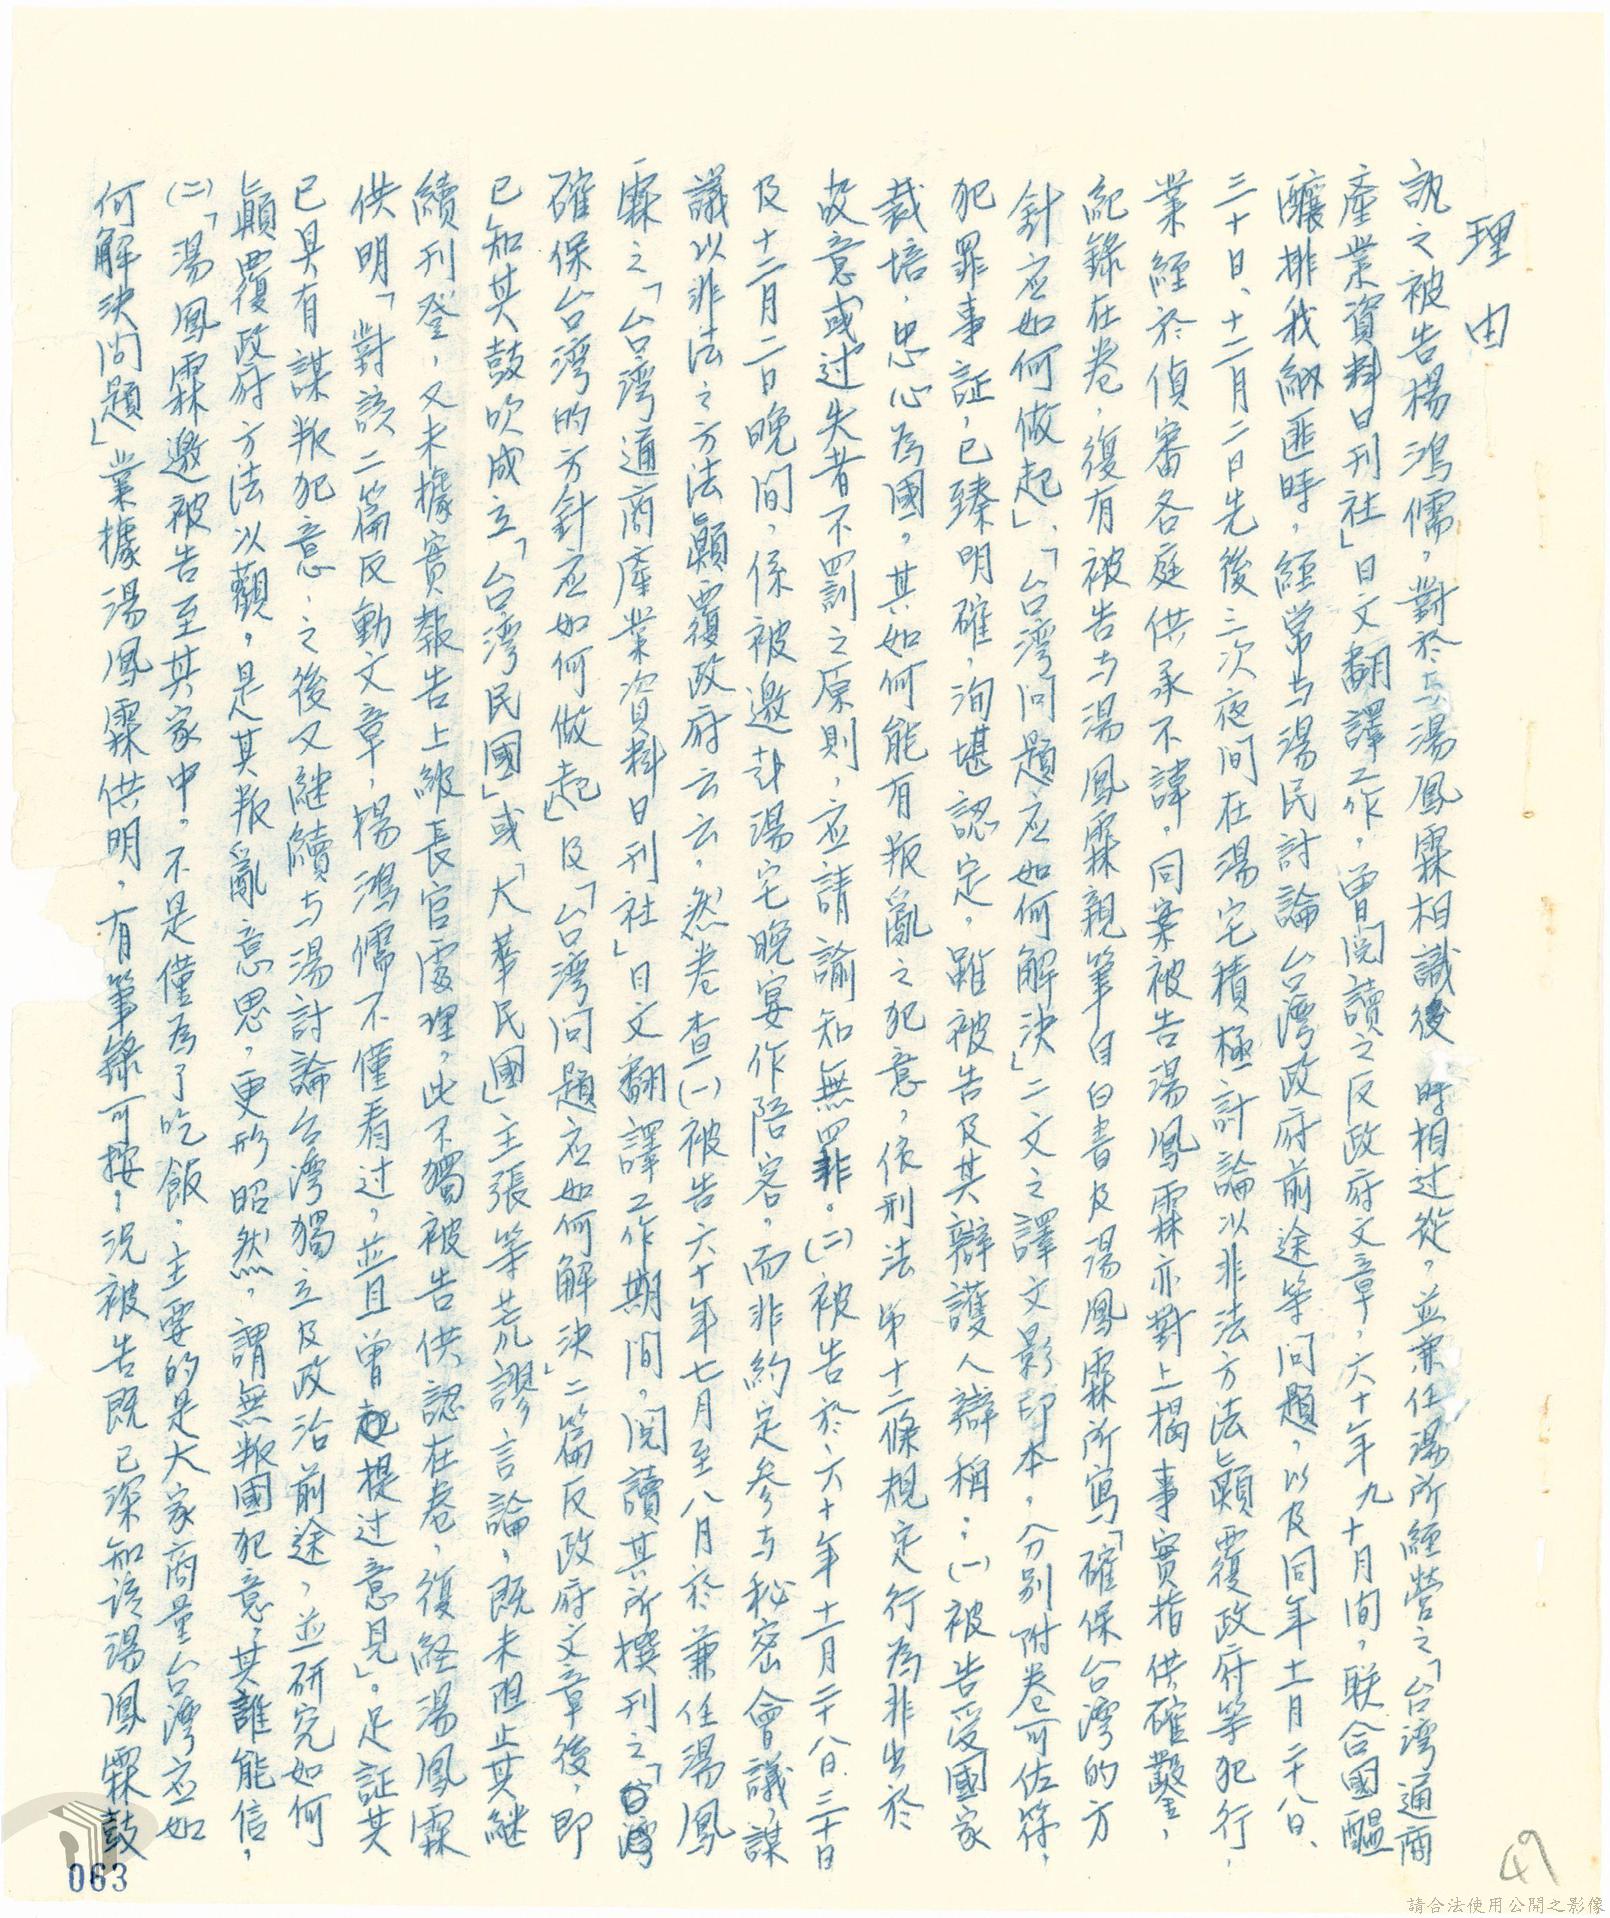 理由
訊之被告楊鴻儒，對於与湯鳳霖相識後 時相过從，並兼任湯所經營之「台湾通商
產業資料日刊社」日文翻譯工作，曾閱讀之反政府文章，六十年九十月间，联合國醞
釀排我納匪時，經常与湯民討論台湾政府前途等问題，以及同年十一月二十八日、
三十日、十二月二日先後三次夜间在湯宅積極討論以非法方法顛覆政府等犯行，
業經於偵審各庭供承不諱，同案被告湯鳳霖亦對上揭事實指供確鑿，
紀錄在卷，復有被告与湯鳳霖親筆自白書及湯鳳霖所寫「確保台湾的方
針应如何做起」、「台湾问題应如何解決」二文之譯文影印本，分別附卷可佐符，
犯罪事証，已臻明確，洵堪認定，雖被告及其辯護人辯稱：（一）被告受國家
裁培，忠心為國，其如何能有叛亂之犯意，依刑法第十二條規定行為非出於
故意或过失者不罰之原則，应請諭知無罪。（二）被告於六十年十一月二十八日、三十日
及十二月二日晚间，係被邀赴湯宅晚宴作陪客，而非約定參与秘密會議，謀
議以非法之方法顛覆政府云云，然卷查（一）被告六十年七月至八月於兼任湯鳳
霖之「台湾通商產業資料日刊社」日文翻譯工作期间，閱讀其所撰刊之「台湾
確保台湾的方針应如何做起」及「台湾问題应如何解決」二篇反政府文章後，即
已知其鼓吹成立「台湾民國」或「大華民國」主張等荒謬言論，既未阻止其継
續刊登，又未據實報告上級長官處理，此不獨被告供認在卷，復経湯鳳霖
供明「對該二篇反動文章，楊鴻儒不僅看过，並且曾提过意見」。足証其
已具有謀叛犯意，之後又継續与湯討論台湾獨立及政治前途，並研究如何
顛覆政府方法以觀，是其叛亂意思，更形昭然，謂無叛國犯意，其誰能信，
（二）「湯鳳霖邀被告至其家中，不是僅為了吃飯，主要的是大家商量台湾应如
何解決问題」業據湯鳳霖供明，有筆錄可按，況被告既已深知該湯鳳霖鼓
49
063
請合法使用公開之影像